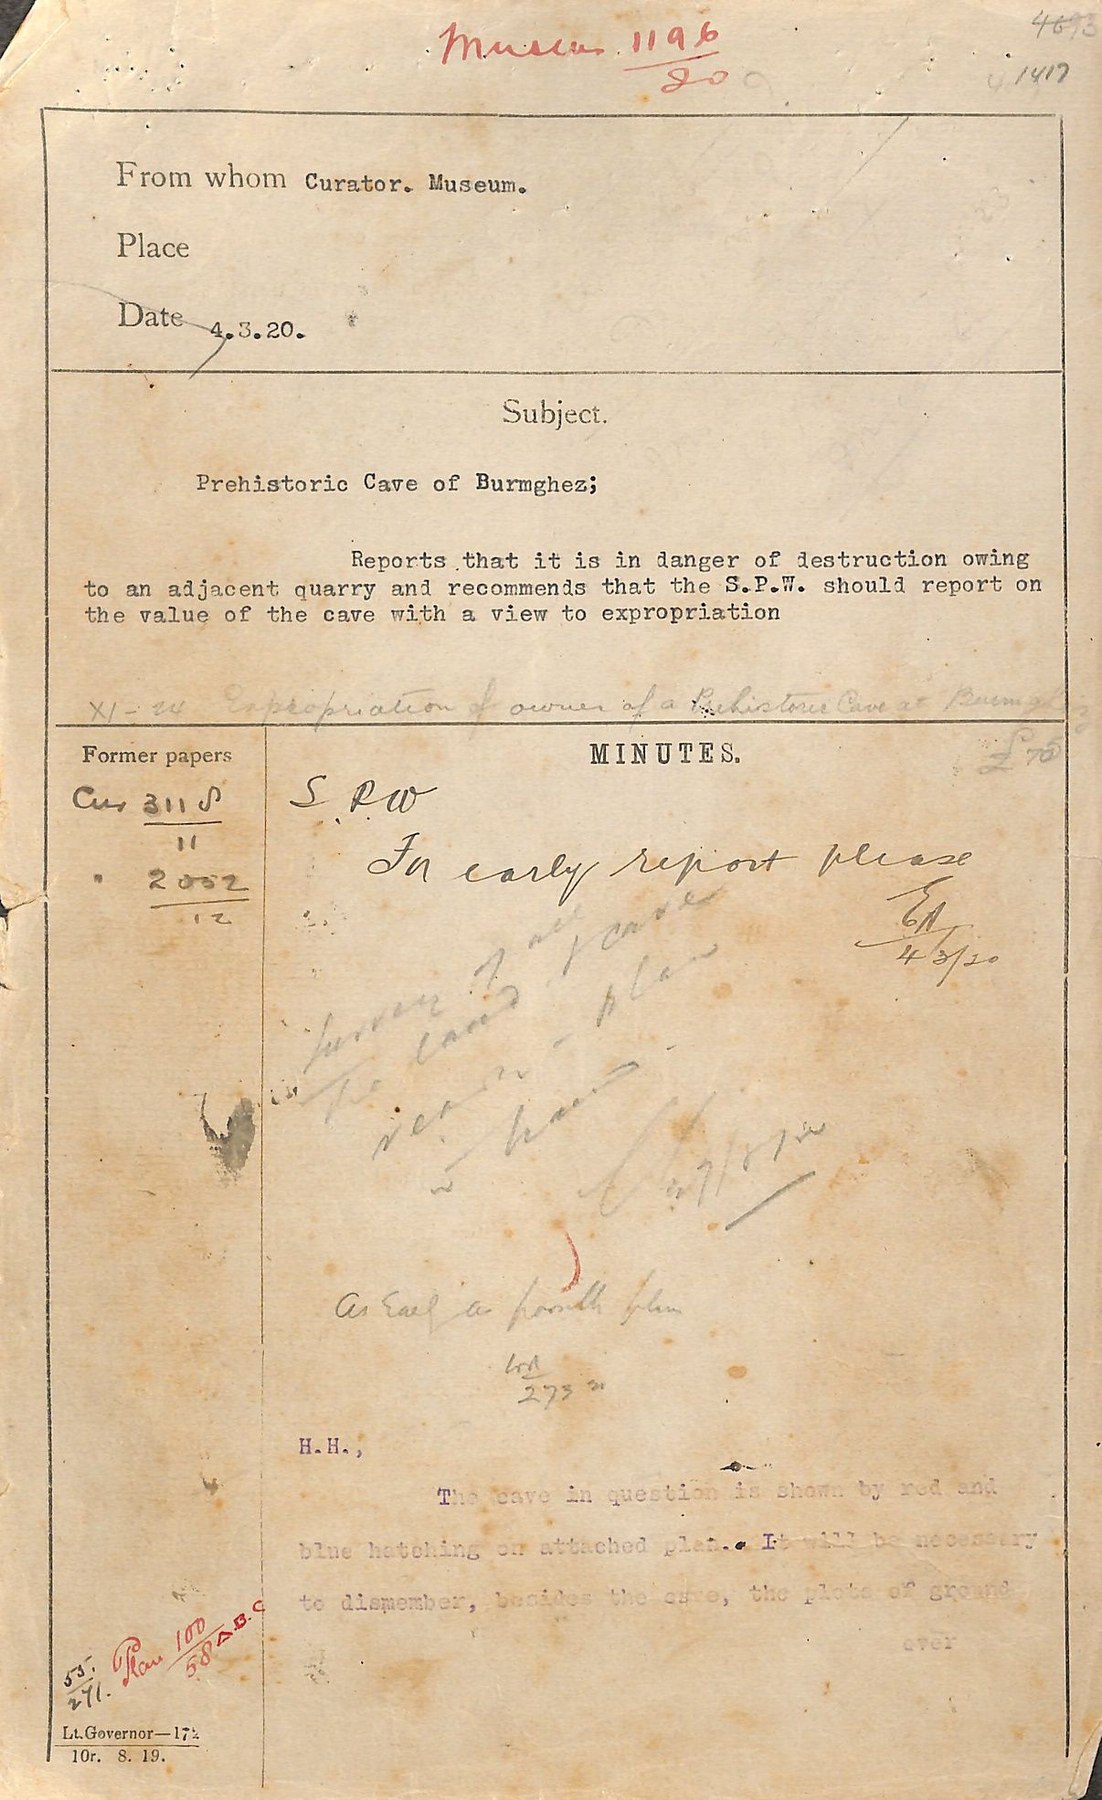 Museum 1196
80
4693
1417
From whom Curator. Museum.
Place
Date 4.3.20.
Subject.
Prehistoric Cave of Burmghez;
Reports that it is in danger of destruction owing
to an adjacent quarry and recommends that the S.P.W. should report on
the value of the cave with a view to expropriation
Expropriation of owner of a Prehistoric Cave at Burmghez
£75
Former papers
MINUTES.
Cur 3118
11
" 2052
12
S.P.W
For early report please
4/3/20
Survey of all
the land & cave
plan
As
plan
273
H.H.,
The cave in question is shown by red and
blue hatching on attached plan. It will be necessary
to dismember, besides the cave, the plots of ground
over
55.
271.
Plan 100
58 A.B.C
Lt.Governor—17½
10r. 8. 19.